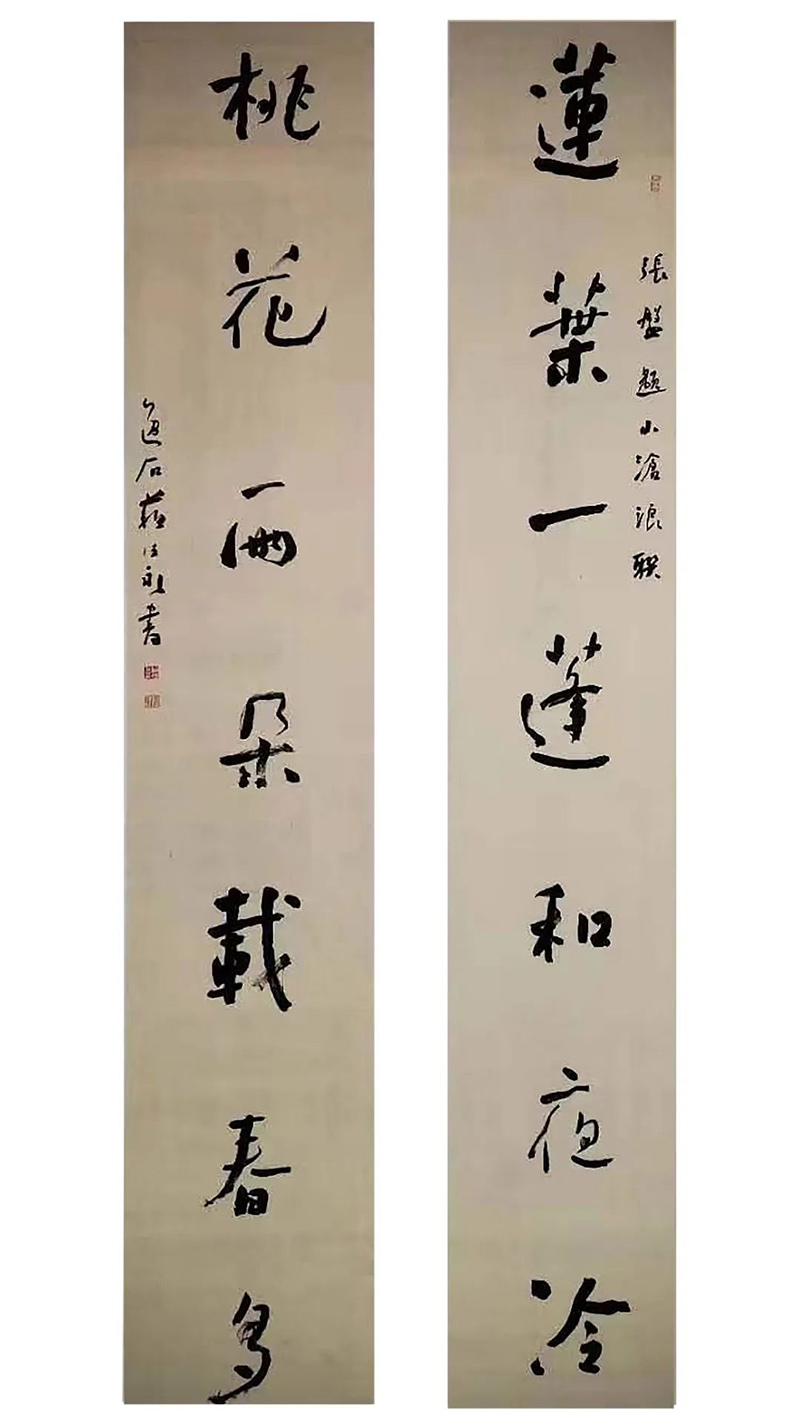 蓮葉一蓬和夜冷
張盤題小滄浪聯
桃花兩朵載春鳥
石蘇書